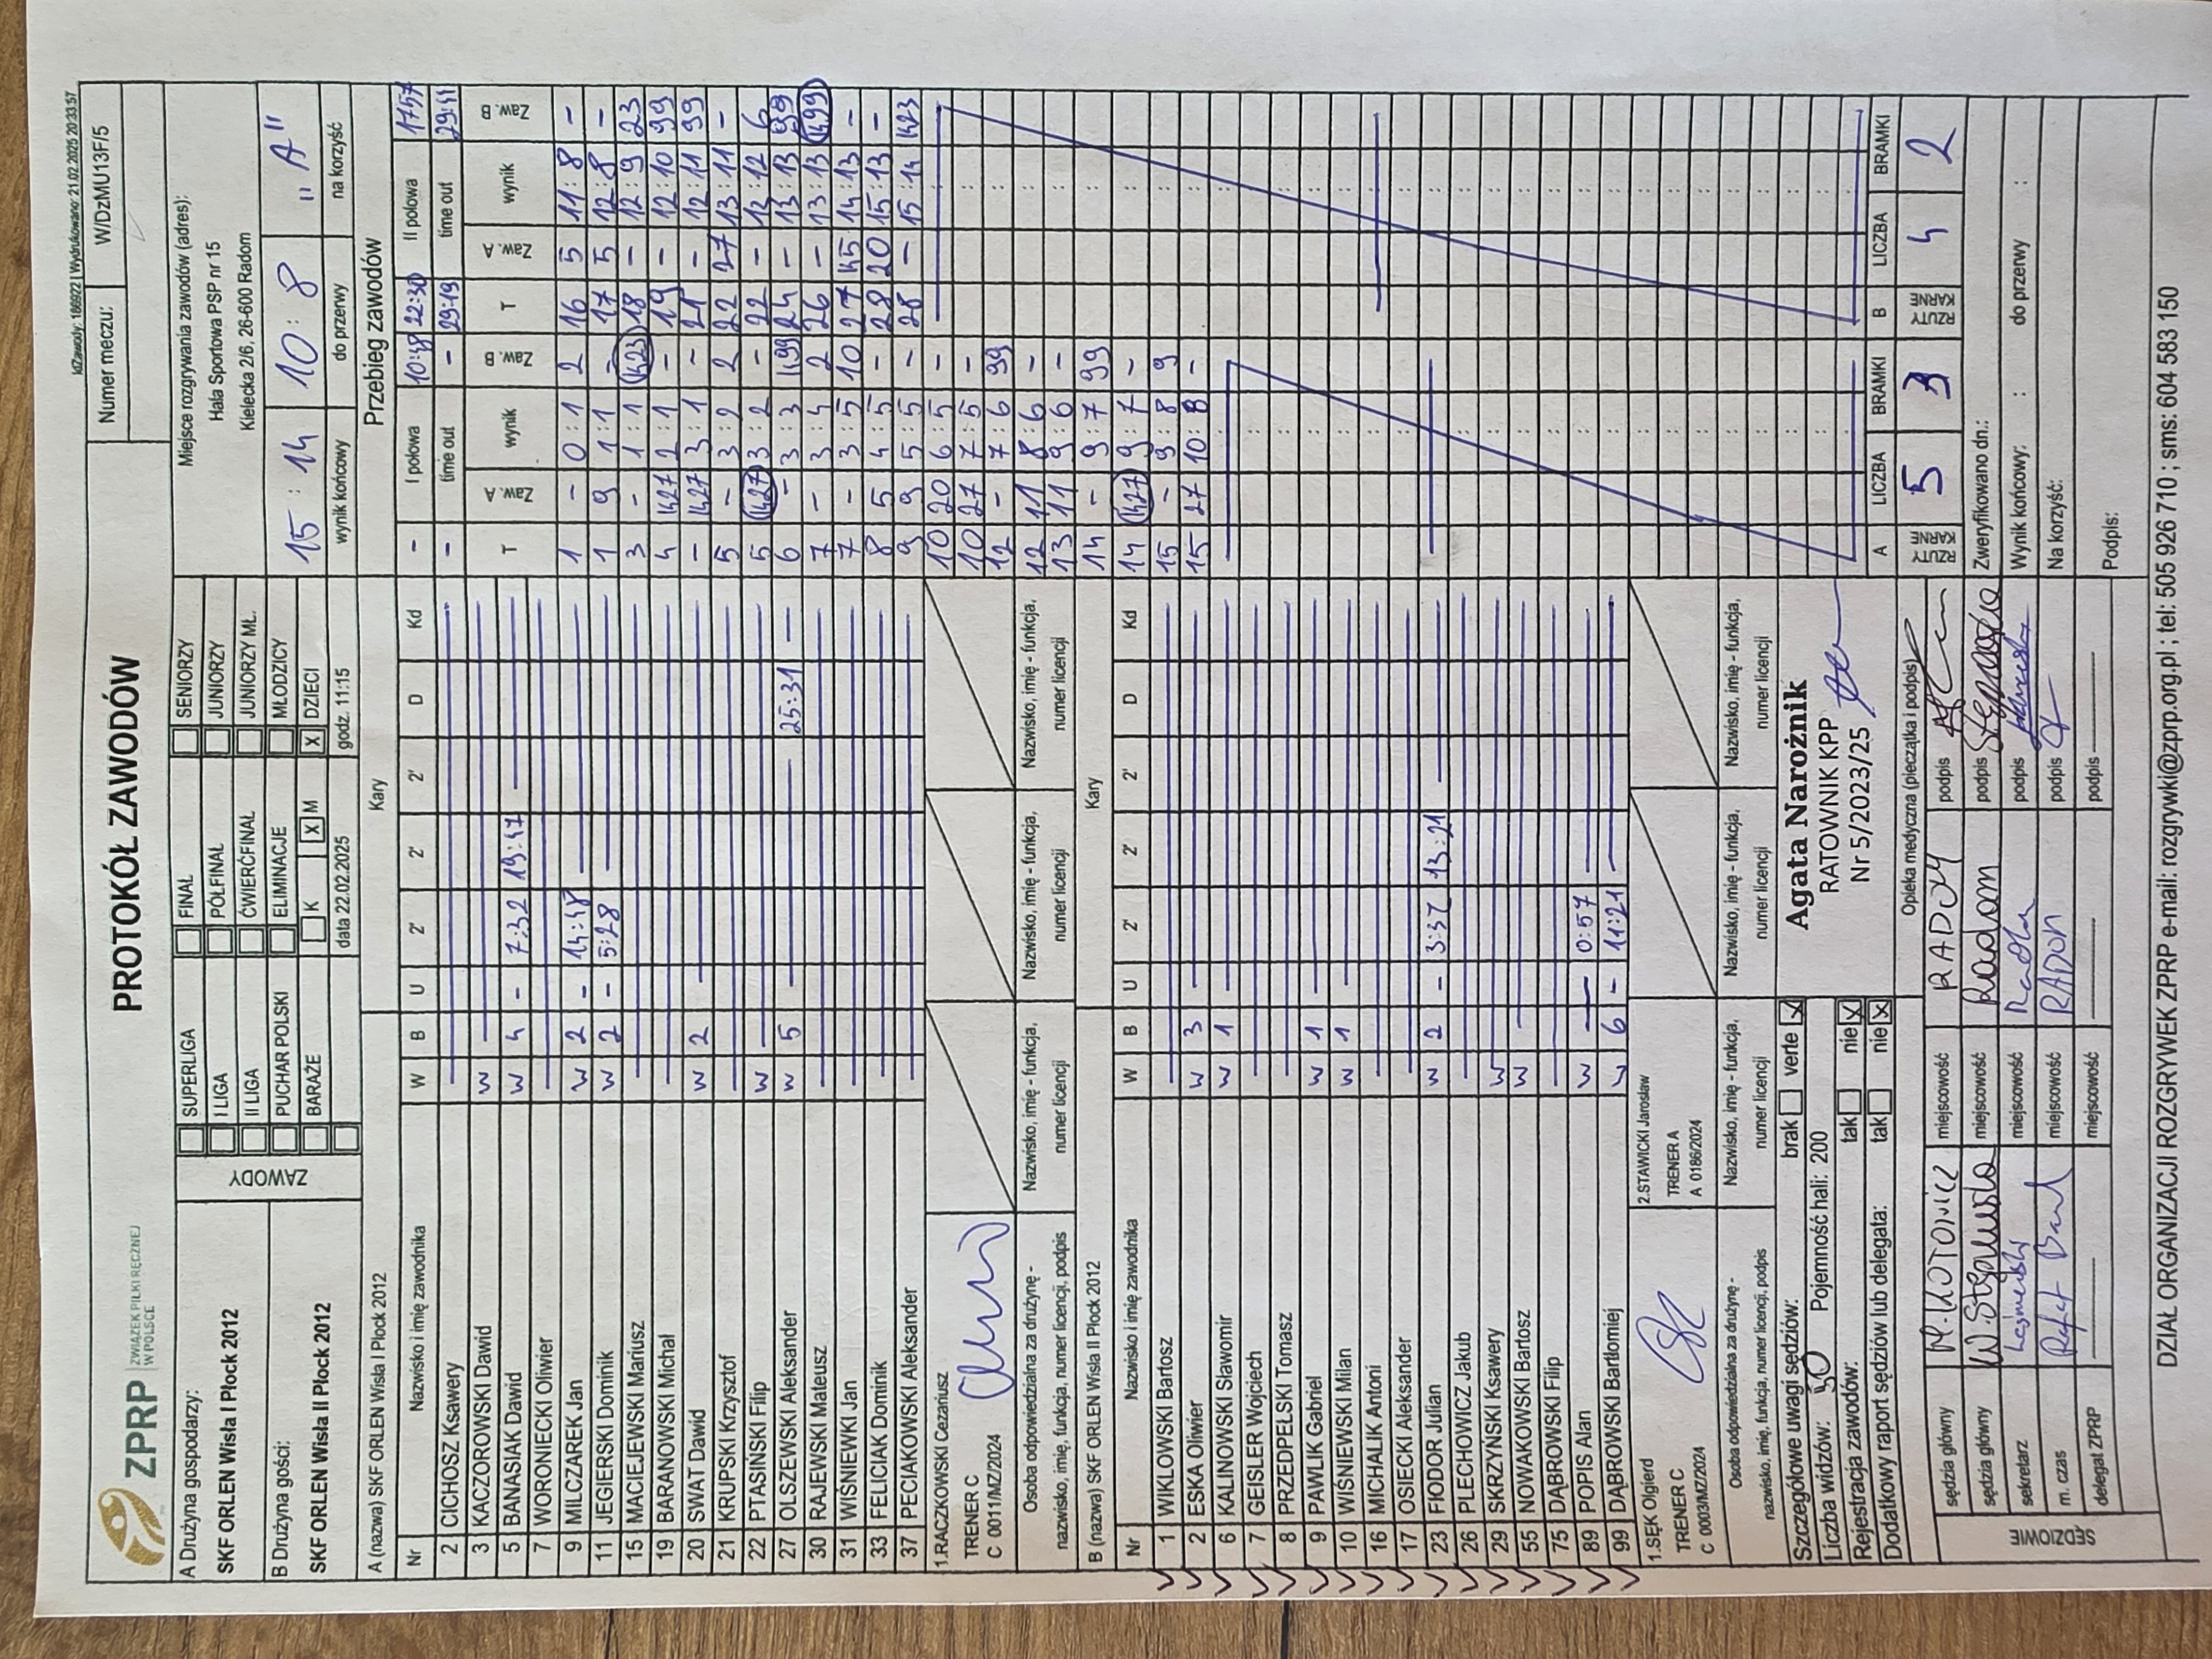 IdZawody: 186922 | Wydrukowano: 21.02.2025 20:33:57
ZPRP ZWIĄZEK PIŁKI RĘCZNEJ W POLSCE
PROTOKÓŁ ZAWODÓW
Numer meczu: W/DzMU13F/5
A Drużyna gospodarzy:
SKF ORLEN Wisła I Płock 2012
B Drużyna gości:
SKF ORLEN Wisła II Płock 2012
ZAWODY
SUPERLIGA FINAŁ SENIORZY
I LIGA PÓŁFINAŁ JUNIORZY
II LIGA ĆWIERĆFINAŁ JUNIORZY MŁ.
PUCHAR POLSKI ELIMINACJE MŁODZICY
BARAŻE K X M X DZIECI
data 22.02.2025 godz. 11:15
Miejsce rozgrywania zawodów (adres):
Hala Sportowa PSP nr 15
Kielecka 2/6, 26-600 Radom
15 : 14 10 : 8 "A"
wynik końcowy do przerwy na korzyść
A (nazwa) SKF ORLEN Wisła I Płock 2012 Kary
Nr Nazwisko i imię zawodnika W B U 2' 2' 2' D Kd
2 CICHOSZ Ksawery
3 KACZOROWSKI Dawid w
5 BANASIAK Dawid w 4 - 7:32 19:47
7 WORONIECKI Oliwier
9 MILCZAREK Jan w 2 - 14:48
11 JEGIERSKI Dominik w 2 - 5:28
15 MACIEJEWSKI Mariusz
19 BARANOWSKI Michał
20 SWAT Dawid w 2
21 KRUPSKI Krzysztof
22 PTASIŃSKI Filip w
27 OLSZEWSKI Aleksander w 5 25:31
30 RAJEWSKI Mateusz
31 WIŚNIEWKI Jan
33 FELICIAK Dominik
37 PECIAKOWSKI Aleksander
1.RACZKOWSKI Cezariusz
TRENER C
C 0011/MZ/2024
Osoba odpowiedzialna za drużynę - nazwisko, imię, funkcja, numer licencji, podpis
Nazwisko, imię - funkcja, numer licencji
Nazwisko, imię - funkcja, numer licencji
Nazwisko, imię - funkcja, numer licencji
B (nazwa) SKF ORLEN Wisła II Płock 2012 Kary
Nr Nazwisko i imię zawodnika W B U 2' 2' 2' D Kd
1 WIKLOWSKI Bartosz
2 ESKA Oliwier w 3
6 KALINOWSKI Sławomir w 1
7 GEISLER Wojciech
8 PRZEDPEŁSKI Tomasz
9 PAWLIK Gabriel w 1
10 WIŚNIEWSKI Milan w 1
16 MICHALIK Antoni
17 OSIECKI Aleksander
23 FIODOR Julian w 2 - 3:37 13:21
26 PLECHOWICZ Jakub
29 SKRZYŃSKI Ksawery w
55 NOWAKOWSKI Bartosz w
75 DĄBROWSKI Filip
89 POPIS Alan w - 0:57
99 DĄBROWSKI Bartłomiej w 6 - 11:21
1.SĘK Olgierd
TRENER C
C 0003/MZ/2024
2.STAWICKI Jarosław
TRENER A
A 0186/2024
Osoba odpowiedzialna za drużynę - nazwisko, imię, funkcja, numer licencji, podpis
Nazwisko, imię - funkcja, numer licencji
Nazwisko, imię - funkcja, numer licencji
Nazwisko, imię - funkcja, numer licencji
Szczegółowe uwagi sędziów: brak verte X
Liczba widzów: 50 Pojemność hali: 200
Rejestracja zawodów: tak nie X
Dodatkowy raport sędziów lub delegata: tak nie X
Agata Narożnik
RATOWNIK KPP
Nr 5/2023/25
Opieka medyczna (pieczątka i podpis)
SĘDZIOWIE
sędzia główny M. KOTOWICZ miejscowość RADOM podpis
sędzia główny miejscowość Radom podpis
sekretarz miejscowość Radom podpis
m. czas Rafał miejscowość RADOM podpis
delegat ZPRP miejscowość podpis
Przebieg zawodów
- I połowa 10:48 22:30 II połowa 17:57
- time out - 29:19 time out 29:41
T Zaw. A wynik Zaw. B T Zaw. A wynik Zaw. B
1 - 0 : 1 2 16 5 11 : 8 -
1 9 1 : 1 - 17 5 12 : 8 -
3 - 1 : 1 k23 18 - 12 : 9 23
4 k27 2 : 1 - 19 - 12 : 10 99
- k27 3 : 1 - 21 - 12 : 11 99
5 - 3 : 2 2 22 27 13 : 11 -
5 k27 3 : 2 - 22 - 13 : 12 6
6 - 3 : 3 k99 24 - 13 : 13 99
7 - 3 : 4 2 26 - 13 : 13 k99
7 - 3 : 5 10 27 k5 14 : 13 -
8 5 4 : 5 - 28 20 15 : 13 -
9 9 5 : 5 - 28 - 15 : 14 k23
10 20 6 : 5 -
10 27 7 : 5 -
12 - 7 : 6 99
12 11 8 6 -
13 11 9 : 6 -
14 - 9 7 99
14 k27 9 : 7 -
15 - 9 : 8 9
15 27 10 : 8 -
A LICZBA BRAMKI B LICZBA BRAMKI
RZUTY KARNE 5 3 RZUTY KARNE 4 2
Zweryfikowano dn.:
Wynik końcowy: : do przerwy :
Na korzyść:
Podpis:
DZIAŁ ORGANIZACJI ROZGRYWEK ZPRP e-mail: rozgrywki@zprp.org.pl ; tel: 505 926 710 ; sms: 604 583 150